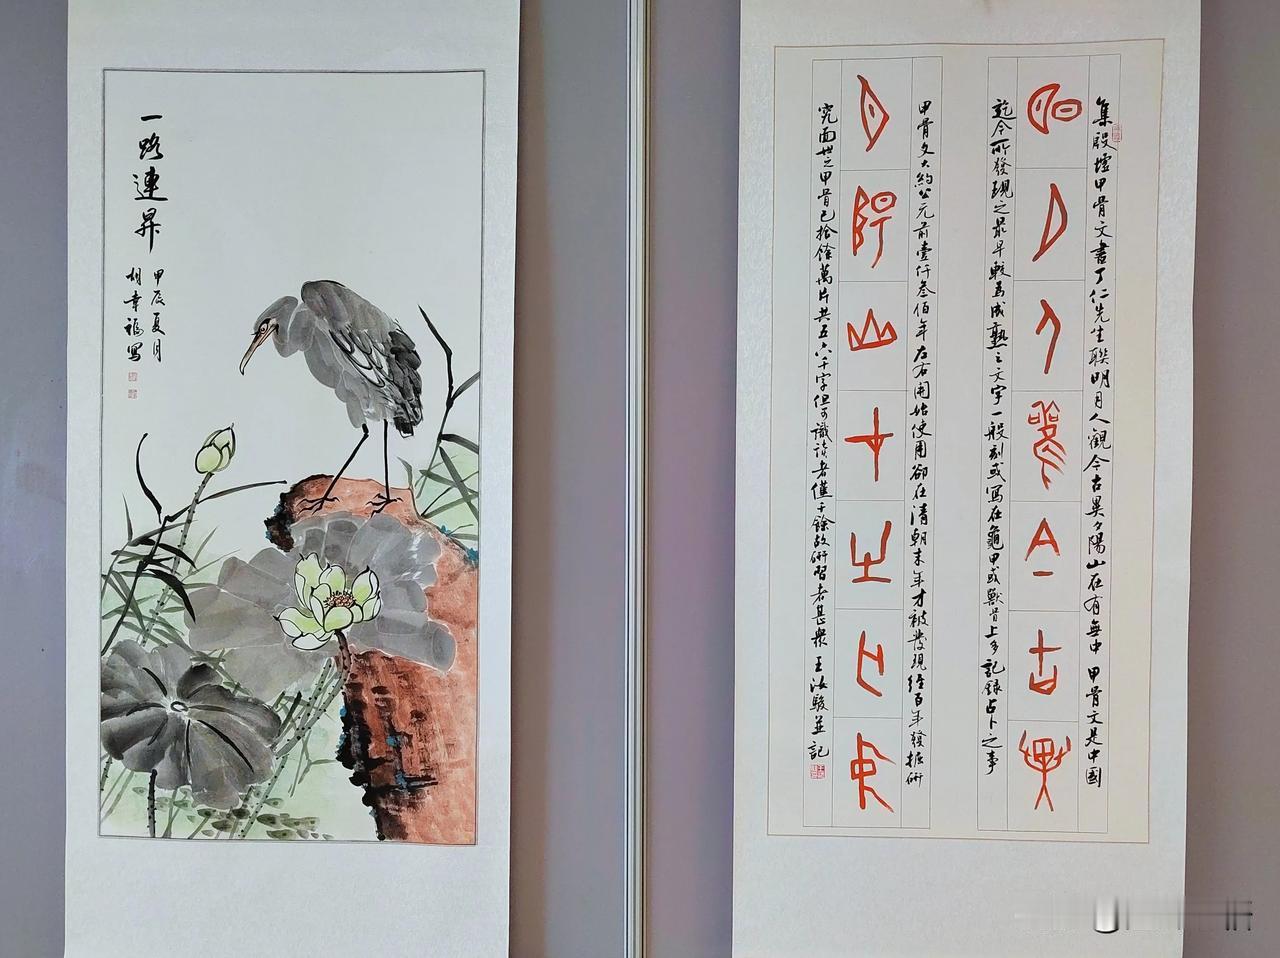 一路連昇
甲辰夏月
胡幸福寫
集殷墟甲骨文書丁仁先生聯明月人觀今古異夕陽山在有無中 甲骨文是中國
明月人觀今古異
迄今所發現之最早較爲成熟之文字一般刻或寫在龜甲或獸骨上多記錄占卜之事
甲骨文大約公元前壹仟叁佰年左右開始使用卻在清朝末年才被發現經百年發掘研
夕陽山在有無中
究面世之甲骨已拾餘萬片共五六千字但可識讀者僅千餘故研習者甚衆 王汝駿並記